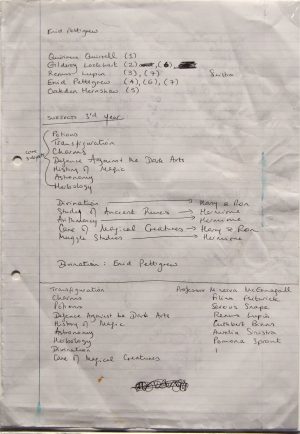 Enid Pettigrew
Quirinus Quirrell (1)
Gilderoy Lockhart (2) (6),
Remus Lupin (3), (7) Sinistra
Enid Pettigrew (4), (6), (7)
Oakden Hobday (5)
SUBJECTS 3rd Year
core subjects
Potions
Transfiguration
Charms
Defence Against the Dark Arts
History of Magic
Astronomy
Herbology
Divination → Harry & Ron
Study of Ancient Runes → Hermione
Arithmancy → Hermione
Care of Magical Creatures → Harry & Ron
Muggle Studies → Hermione
Divination: Enid Pettigrew
Transfiguration Professor Minerva McGonagall
Charms Filius Flitwick
Potions Severus Snape
Defence Against the Dark Arts Remus Lupin
History of Magic Cuthbert Binns
Astronomy Aurelia Sinistra
Herbology Pomona Sprout
Divination
Care of Magical Creatures